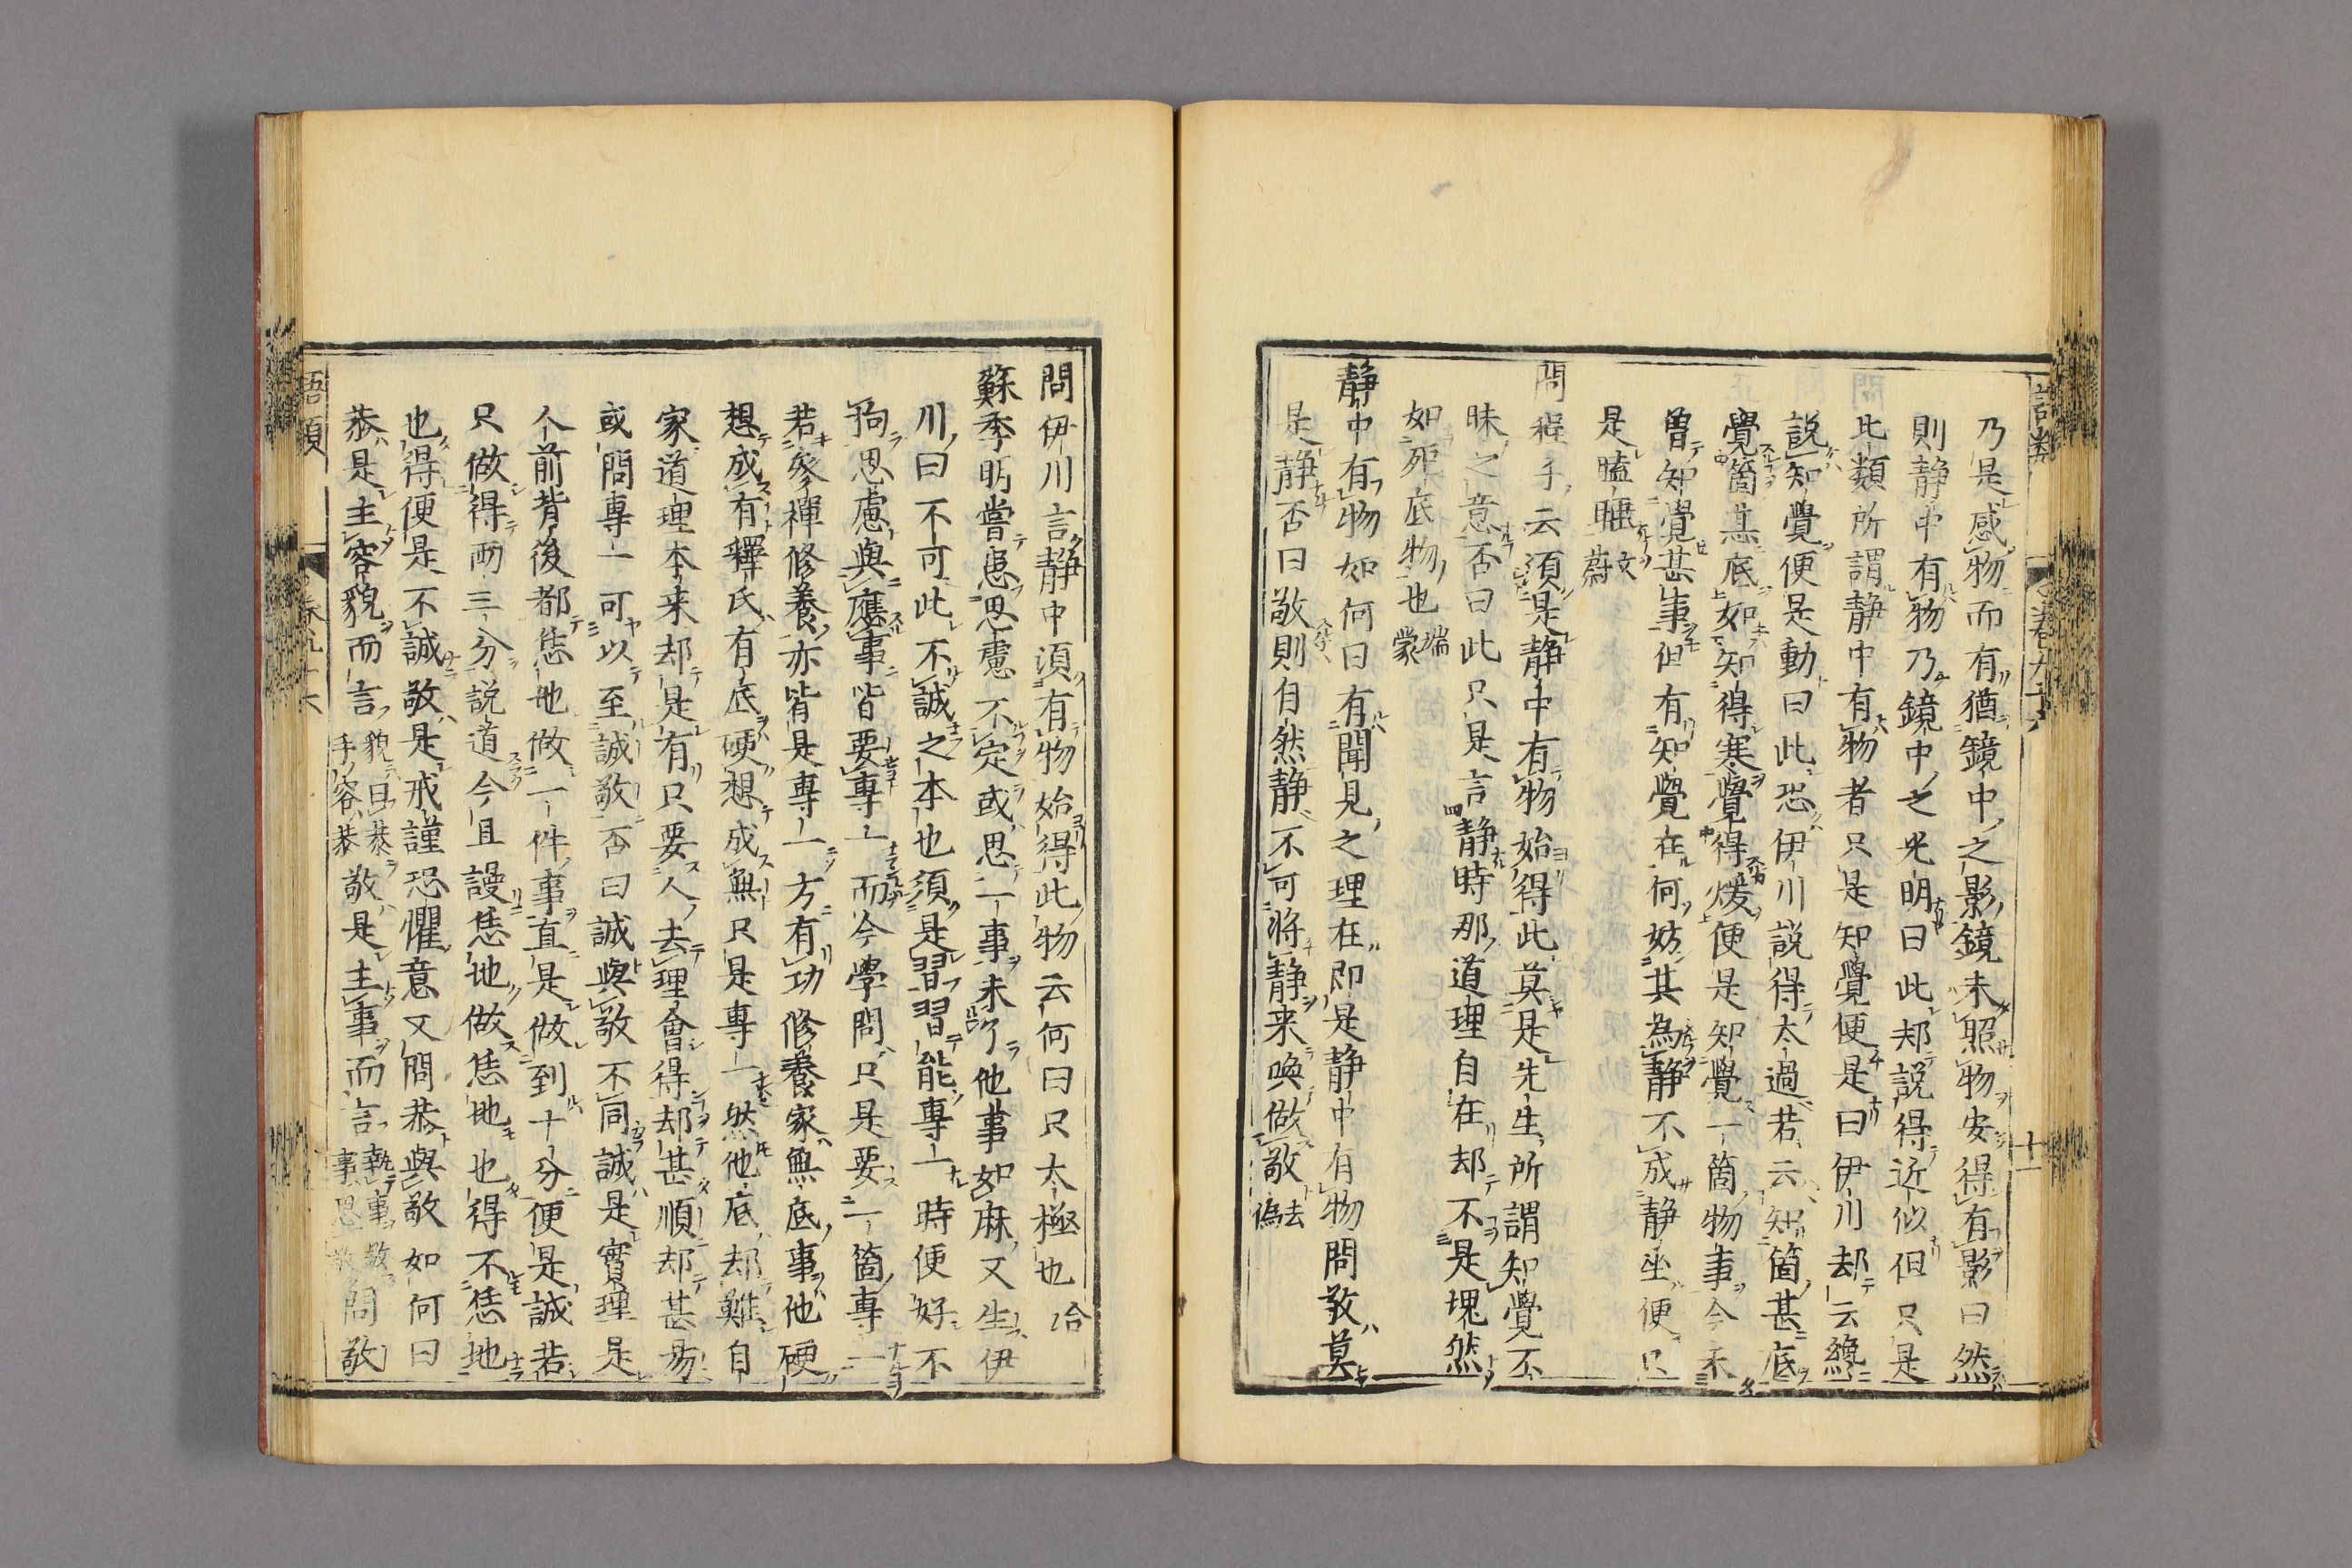 乃是感物而有猶鏡中之影鏡未照物安得有影曰然
則静中有物乃鏡中之光明曰此却說得近似但只是
此類所謂静中有物者只是知覺便是曰伊川却云纔
說知覺便是動曰此恐伊川説得太過若云知箇甚底
覺箇甚底如知得寒覺得煖便是知覺一箇物事今未
曾知覺甚事但有知覺在何妨其為静不成静坐便只
是瞌睡文蔚
問程子云須是静中有物始得此莫是先生所謂知覺不
昧之意否曰此只是言静時那道理自在却不是塊然
如死底物也端蒙
静中有物如何曰有聞見之理在即是静中有物問敬莫
是静否曰敬則自然静不可將静来喚做敬去偽
問伊川言静中須有物始得此物云何曰只太極也洽
蘇季明嘗患思慮不定或思一事未了他事如麻又生伊
川曰不可此不誠之本也須是習習能專一時便好不
拘思慮與應事皆要專一而今學問只是要一箇專一
若參禪修養亦皆是專一方有功修養家無底事他硬
想成有釋氏有底硬想成無只是專一然他底却難自
家道理本来却是有只要人去理會得却甚順却甚易
或問專一可以至誠敬否曰誠與敬不同誠是實理是
人前背後都恁地做一件事直是做到十分便是誠若
只做得兩三分説道今且謾恁地做恁地也得不恁地
也得便是不誠敬是戒謹恐懼意又問恭與敬如何曰
恭是主容貌而言貌曰恭手容恭敬是主事而言執事敬事思敬問敬
語類
卷九十六
十一